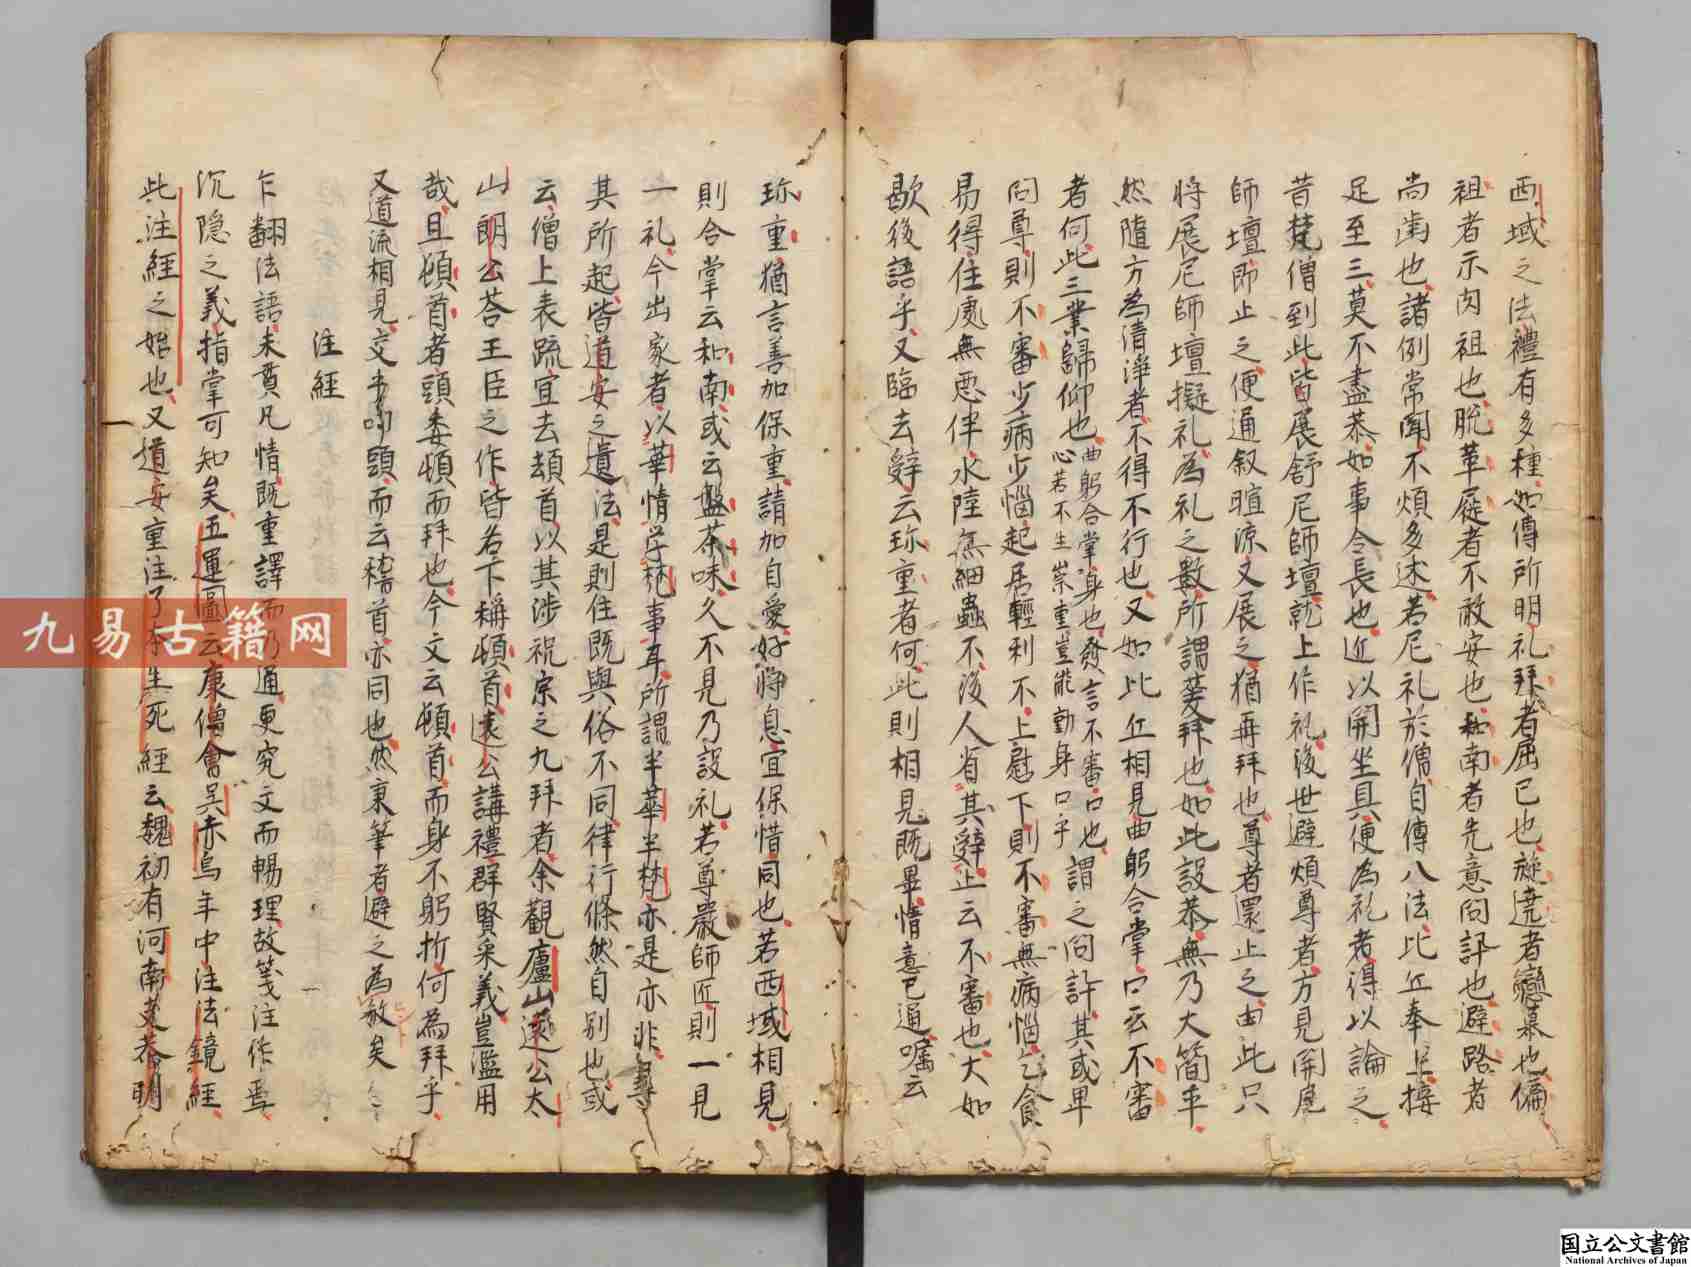 西域之法禮有多種如傳所明礼拜者屈己也旋遶者戀慕也偏
袒者示肉袒也脫革屣者不敢安也和南者先意問訊也避路者
尚歯也諸例常聞不煩多述若尼礼於僧自傳八法比丘奉上接
足至三莫不盡恭如事令長也近以開坐具便為礼者得以論之
昔梵僧到此皆展舒尼師壇就上作礼後世避煩尊者方見開尼
師壇即止之便通叙暄凉又展之猶再拜也尊者還止之由此只
将展尼師壇擬礼為礼之數所謂蓌拜也如此設恭無乃大簡乎
然隨方為清淨者不得不行也又如比丘相見曲躬合掌口云不審
者何此三業歸仰也曲躬合掌身也發言不審口也心若不生崇重豈能動身口乎謂之問訊其或卑
問尊則不審少病少惱起居輕利不上慰下則不審無病惱乞食
易得住處無惡伴水陸無細蟲不後人省其辤止云不審也大如
歇後語乎又臨去辤云珎重者何此則相見既畢情意已通囑云
珎重猶言善加保重請加自愛好將息宜保惜同也若西域相見
則合掌云和南或云盤茶味久不見乃設礼若尊嚴師匠則一見
一礼今出家者以華情学梵事耳所謂半華半梵亦是亦非尋
其所起皆道安之遺法是則住既與俗不同律行條然自別也或
云僧上表疏宜去頓首以其涉祝宗之九拜者余觀廬山遠公太
山朗公荅王臣之作皆名下稱頓首遠公講禮群賢采義豈濫用
哉且頓首者頭委頓而拜也今文云頓首而身不躬折何為拜乎
又道流相見交手叩頭而云稽首亦同也然秉筆者避之為敏矣
注經
乍翻法語未貫凡情既重譯而乃通更究文而暢理故笺注作焉
沉隐之義指掌可知矣五運圖云康僧會吳赤烏年中注法鏡經
此注經之始也又道安重注了本生死經云魏初有河南支恭明
九易古籍网
国立公文書館
National Archives of Japan